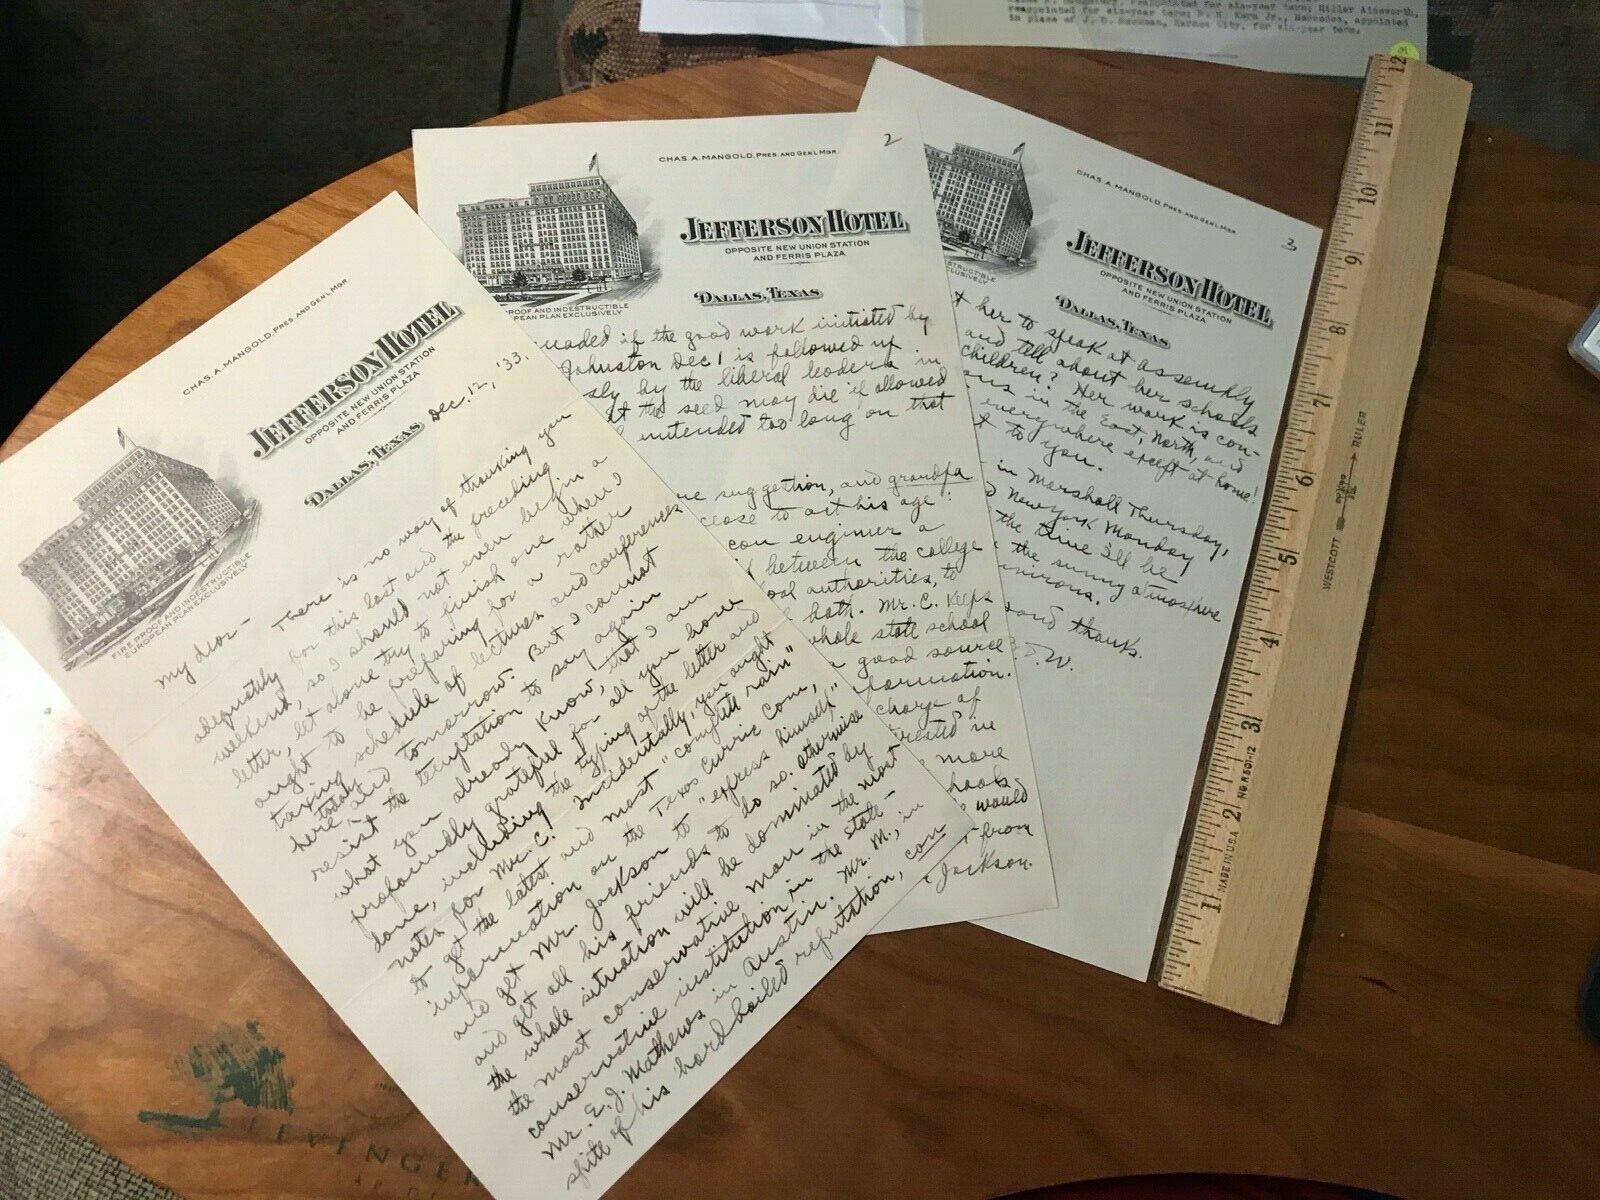 reappointed for six-year term; Hiller Ainsworth,
reappointed for six-year term;
in place of J. D. Jackman, Karnes City, for six-year term.
CHAS. A. MANGOLD, PRES. AND GEN'L MGR.
JEFFERSON HOTEL
OPPOSITE NEW UNION STATION
AND FERRIS PLAZA
DALLAS, TEXAS Dec. 12, '33.
FIRE PROOF AND INDESTRUCTIBLE
EUROPEAN PLAN EXCLUSIVELY
My dear -
There is no way of thanking you
adequately for this last and the preceding
weekend, so I should not even begin a
letter, let alone try to finish one when I
ought to be preparing for a rather
taxing schedule of lectures and conferences
here today and tomorrow. But I cannot
resist the temptation to say again
what you already know, that I am
profoundly grateful for all you have
done, including the typing of the letter and
notes for Mr. C. Incidentally, you ought
to get the latest and most "complete rain"
information on the Texas Curric Com,
and get Mr. Jackson to "express himself"
and get all his friends to do so. Otherwise
the whole situation will be dominated by
the most conservative man in the most
conservative institution in the state -
Mr. E. J. Mathews in Austin. Mr. M., in
spite of his hard boiled reputation, can
2
CHAS. A. MANGOLD, PRES. AND GEN'L MGR.
JEFFERSON HOTEL
OPPOSITE NEW UNION STATION
AND FERRIS PLAZA
DALLAS, TEXAS
PROOF AND INDESTRUCTIBLE
PEAN PLAN EXCLUSIVELY
uaded if the good work initiated by
Johnston Dec 1 is followed up
sly by the liberal leaders in
t the seed may die if allowed
intended too long on that
re suggestion, and grandpa
close to act his age:
con engineer a
between the college
ool authorities, to
both. Mr. C. keeps
whole state school
a good source
formation.
charge of
rested in
more
hools
would
from
Jackson.
3
CHAS. A. MANGOLD, PRES. AND GEN'L MGR.
JEFFERSON HOTEL
OPPOSITE NEW UNION STATION
AND FERRIS PLAZA
DALLAS, TEXAS
ESTRUCTIBLE
SIVELY
t her to speak at assembly
and tell about her schools
children? Her work is con-
ous in the East, North, and
everywhere except at home!
t to you.
in Marshall Thursday,
d New York Monday
the time I'll be
the sunny atmosphere
nvirons.
and thanks.
T.W.
12
11
10
9
8
7
6
5
4
3
2
1
RULER
WESTCOTT
No R501-12
MADE IN U.S.A.
LEVENGER